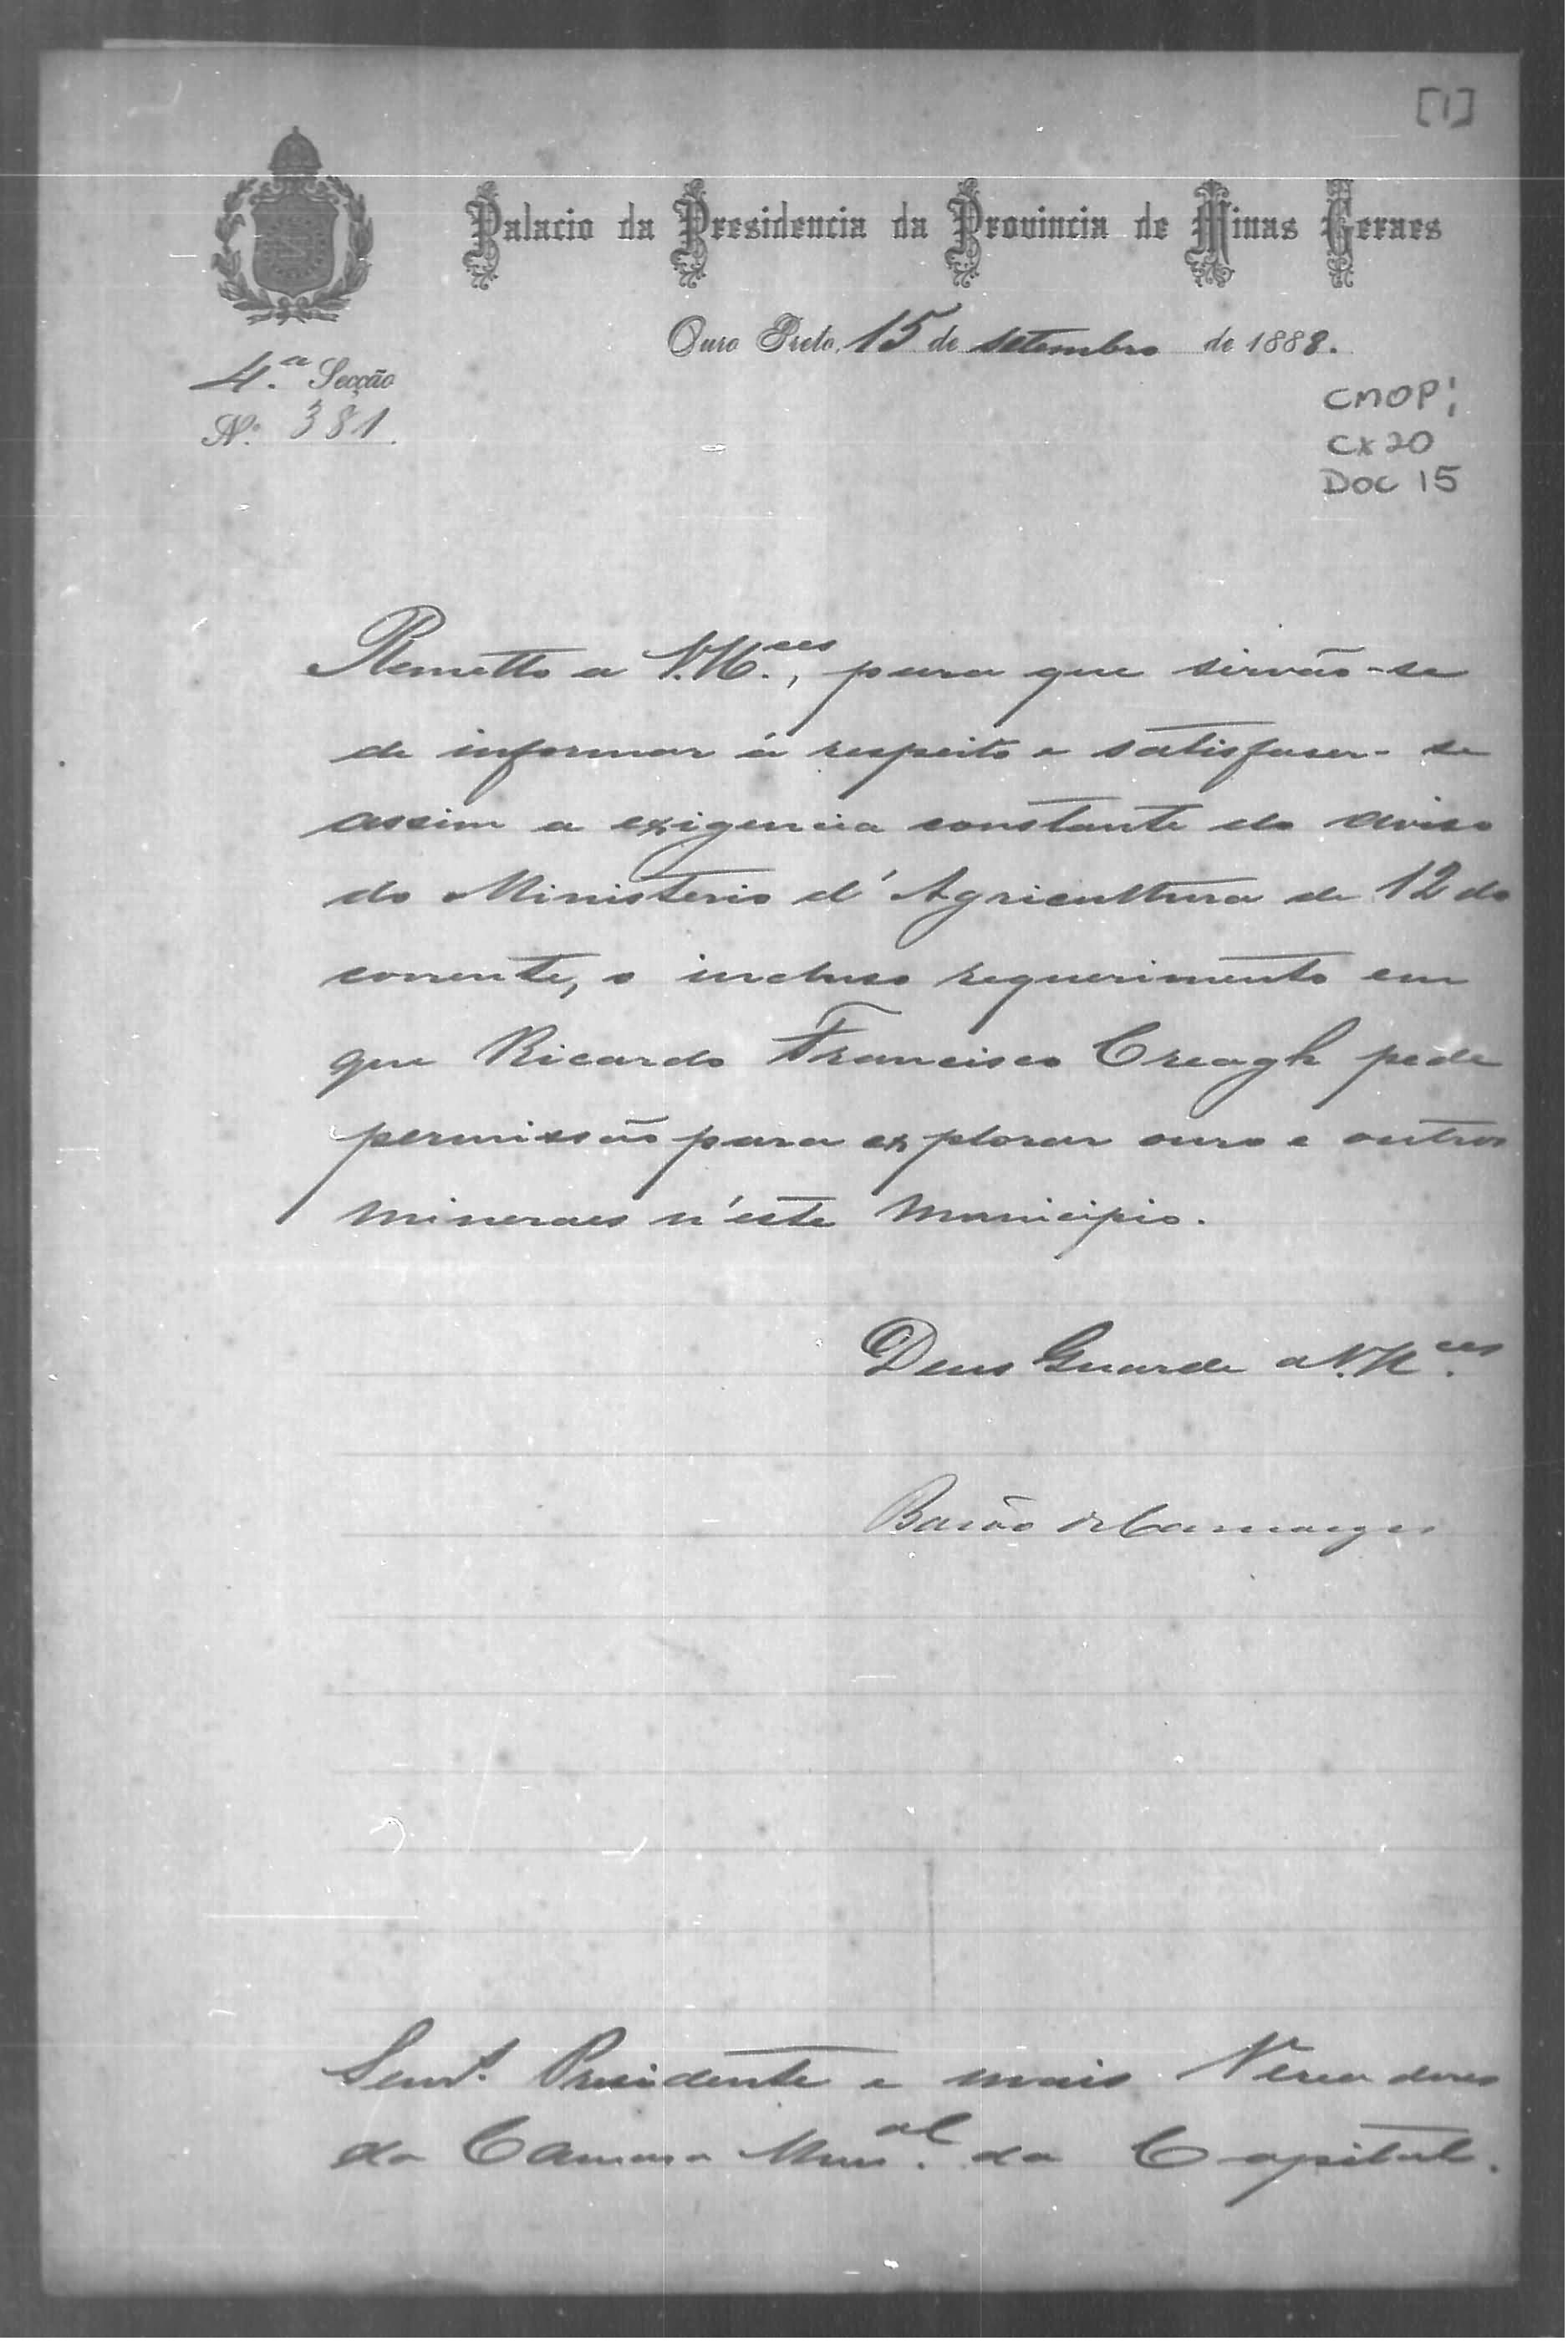 [1]
Palacio da Presidencia da Provincia de Minas Geraes
Ouro Preto, 15 de setembro de 1888.
4.ª Secção
N.º 381.
CMOP;
CX 20
DOC 15
Remetto a V.M.ces, para que sirvão-se
de informar á respeito e satisfaser-se
assim a exigencia constante do aviso
do Ministerio d'Agricultura de 12 do
corrente, o incluso requerimento em
que Ricardo Francisco Creagh pede
permissão para explorar ouro e outros
mineraes n'este Municipio.
Deus Guarde a V.M.ces
Barão de Camargos
Senr.s Presidente e mais Vereadores
da Camara Mun.al da Capital.